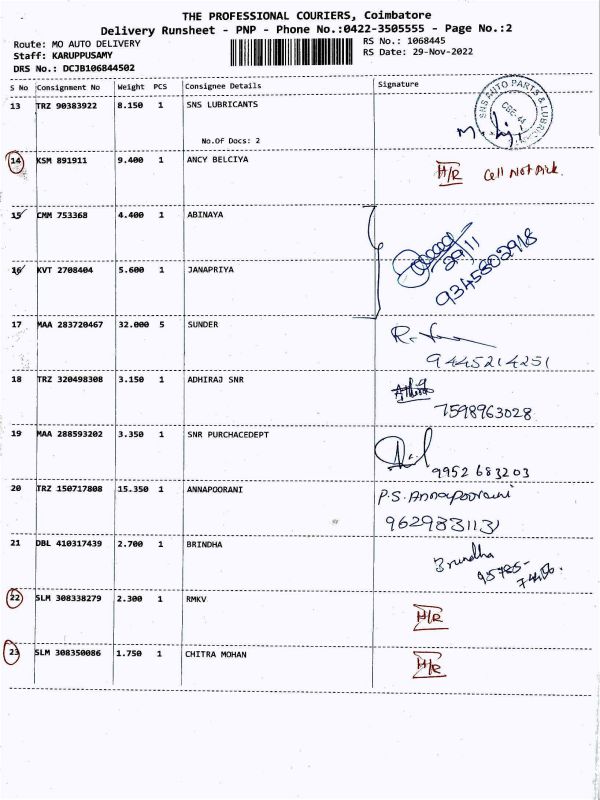 THE PROFESSIONAL COURIERS, Coimbatore
Delivery Runsheet - PNP - Phone No.:0422-3505555 - Page No.:2
Route: MO AUTO DELIVERY
RS No.: 1068445
Staff: KARUPPUSAMY
RS Date: 29-Nov-2022
DRS No.: DCJB106844502
S No Consignment No Weight PCS Consignee Details Signature
13 TRZ 90383922 8.150 1 SNS LUBRICANTS
SNS AUTO PARTS & LUBRICANTS
CBE-44
No.Of Docs: 2
14 KSM 891911 9.400 1 ANCY BELCIYA
H/R Cell Not Pick.
15 CMM 753368 4.400 1 ABINAYA
29/11
16 KVT 2708404 5.600 1 JANAPRIYA
9345802918
17 MAA 283720467 32.000 5 SUNDER
9445214251
18 TRZ 320498308 3.150 1 ADHIRAJ SNR
7598963028
19 MAA 288593202 3.350 1 SNR PURCHACEDEPT
9952683203
20 TRZ 150717808 15.350 1 ANNAPOORANI
P.S. Annapoorani
9629831131
21 DBL 410317439 2.700 1 BRINDHA
Brundha
22 SLM 308338279 2.300 1 RMKV
H/R
23 SLM 308350086 1.750 1 CHITRA MOHAN
H/R